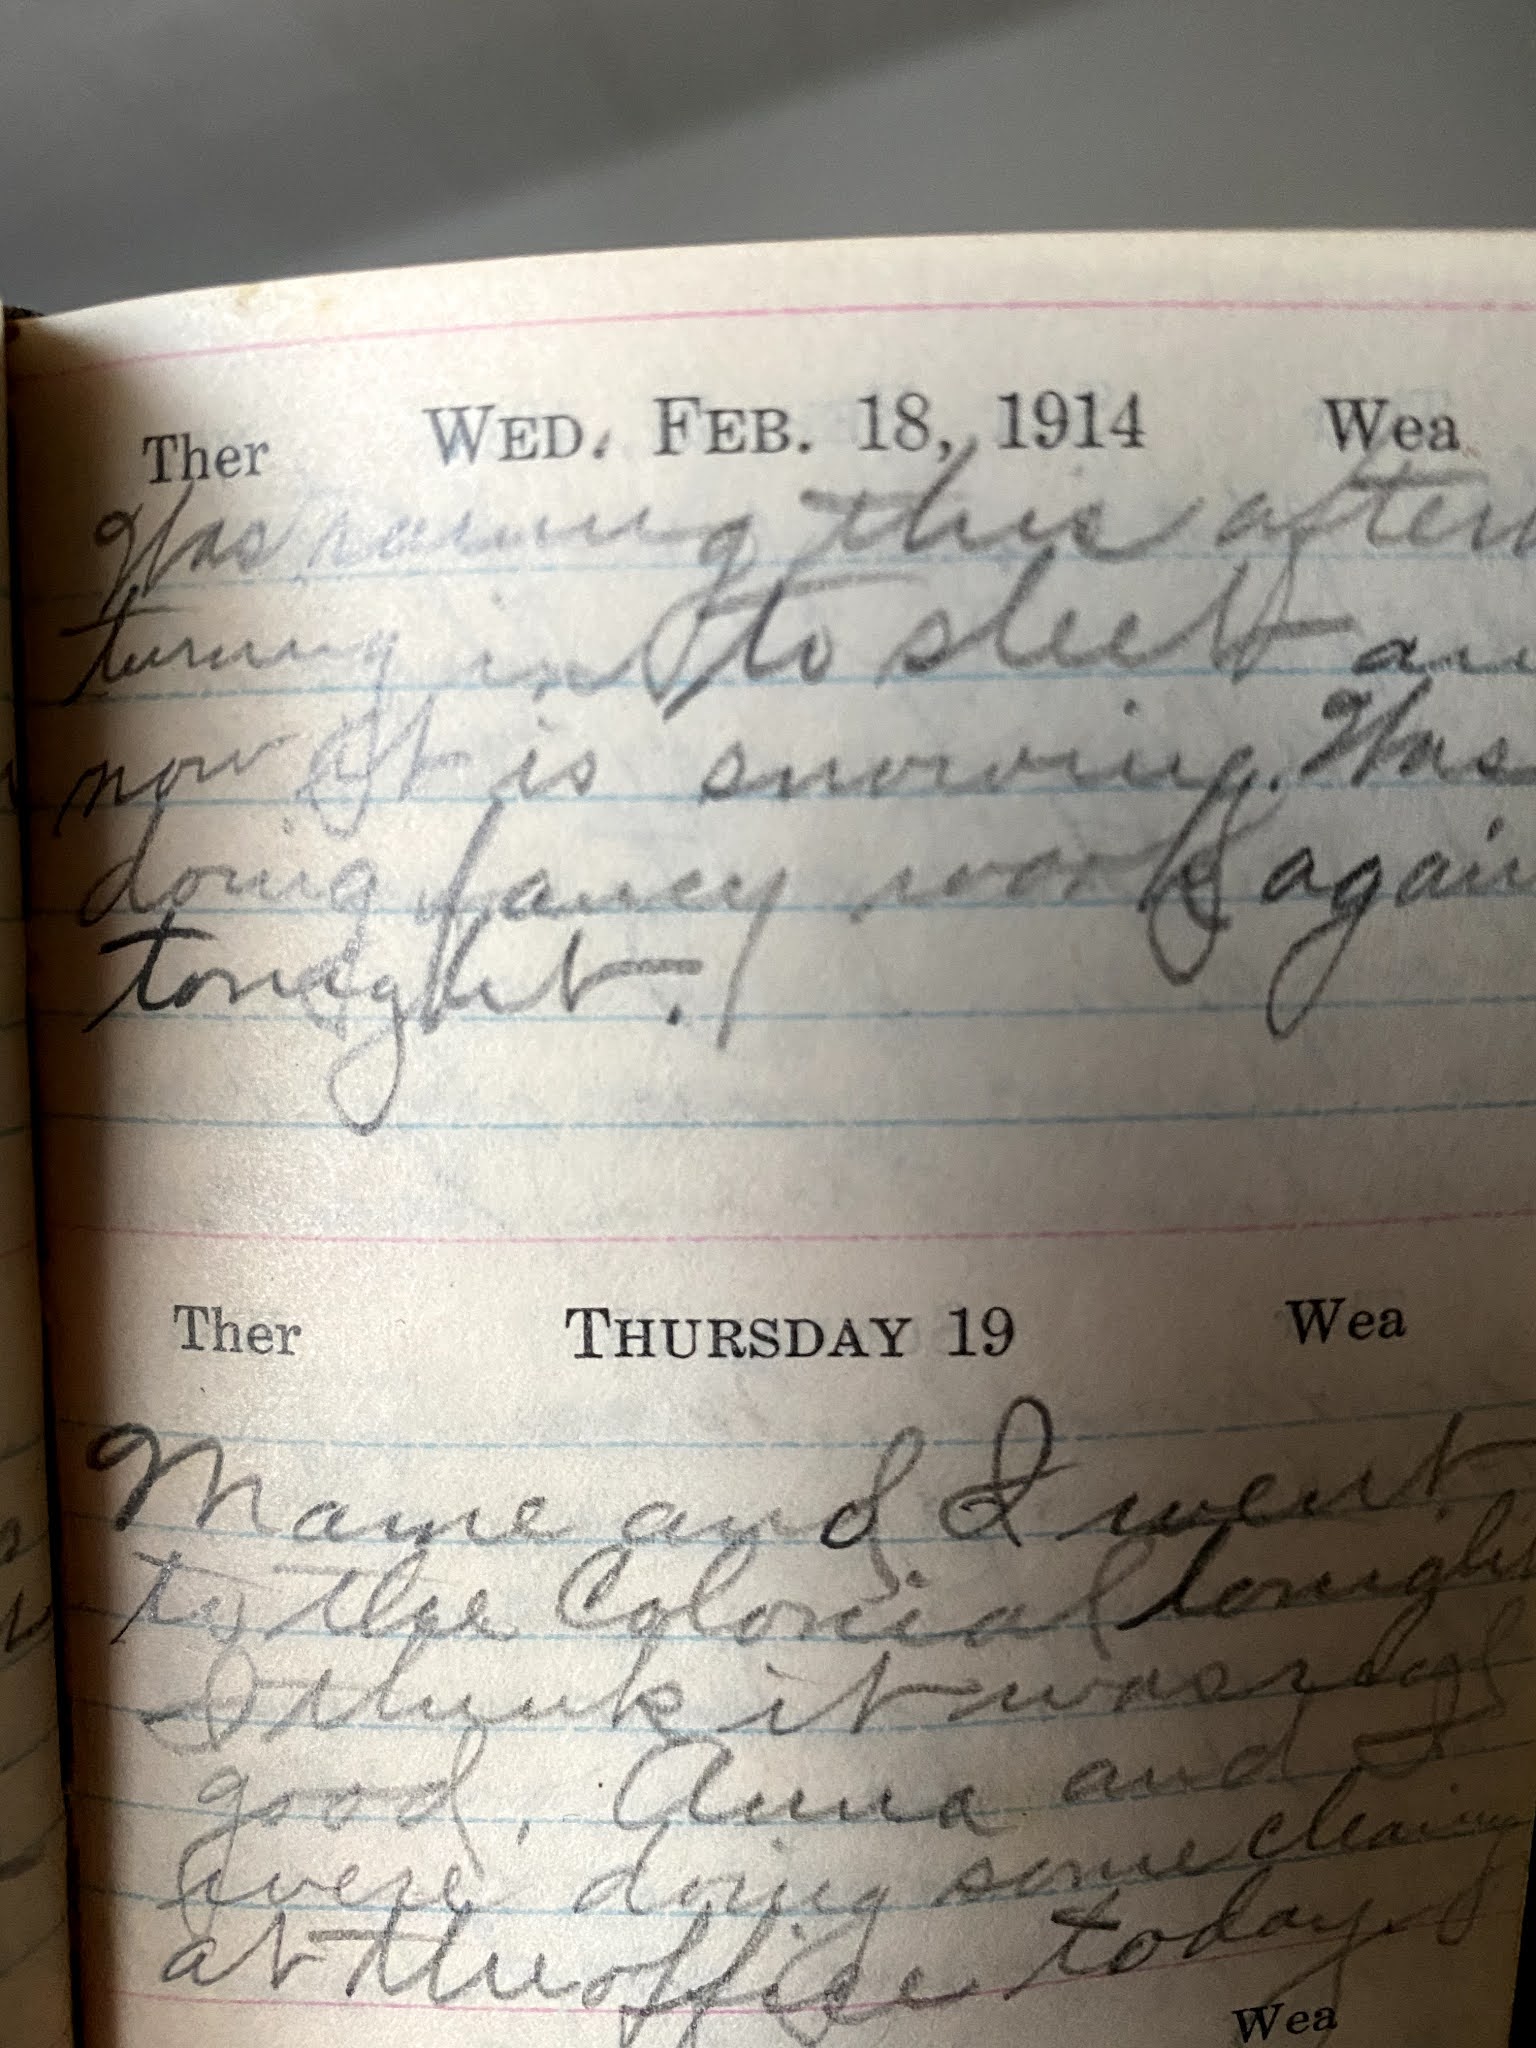 Ther WED. FEB. 18, 1914 Wea
Was raining this after
turning into sleet an
now it is snowing. Was
doing fancy work again
tonight.
Ther THURSDAY 19 Wea
Mame and I went
to the Colonial tonight
I think it was
good. Anna and I
were doing some cleaning
at the office today
Wea